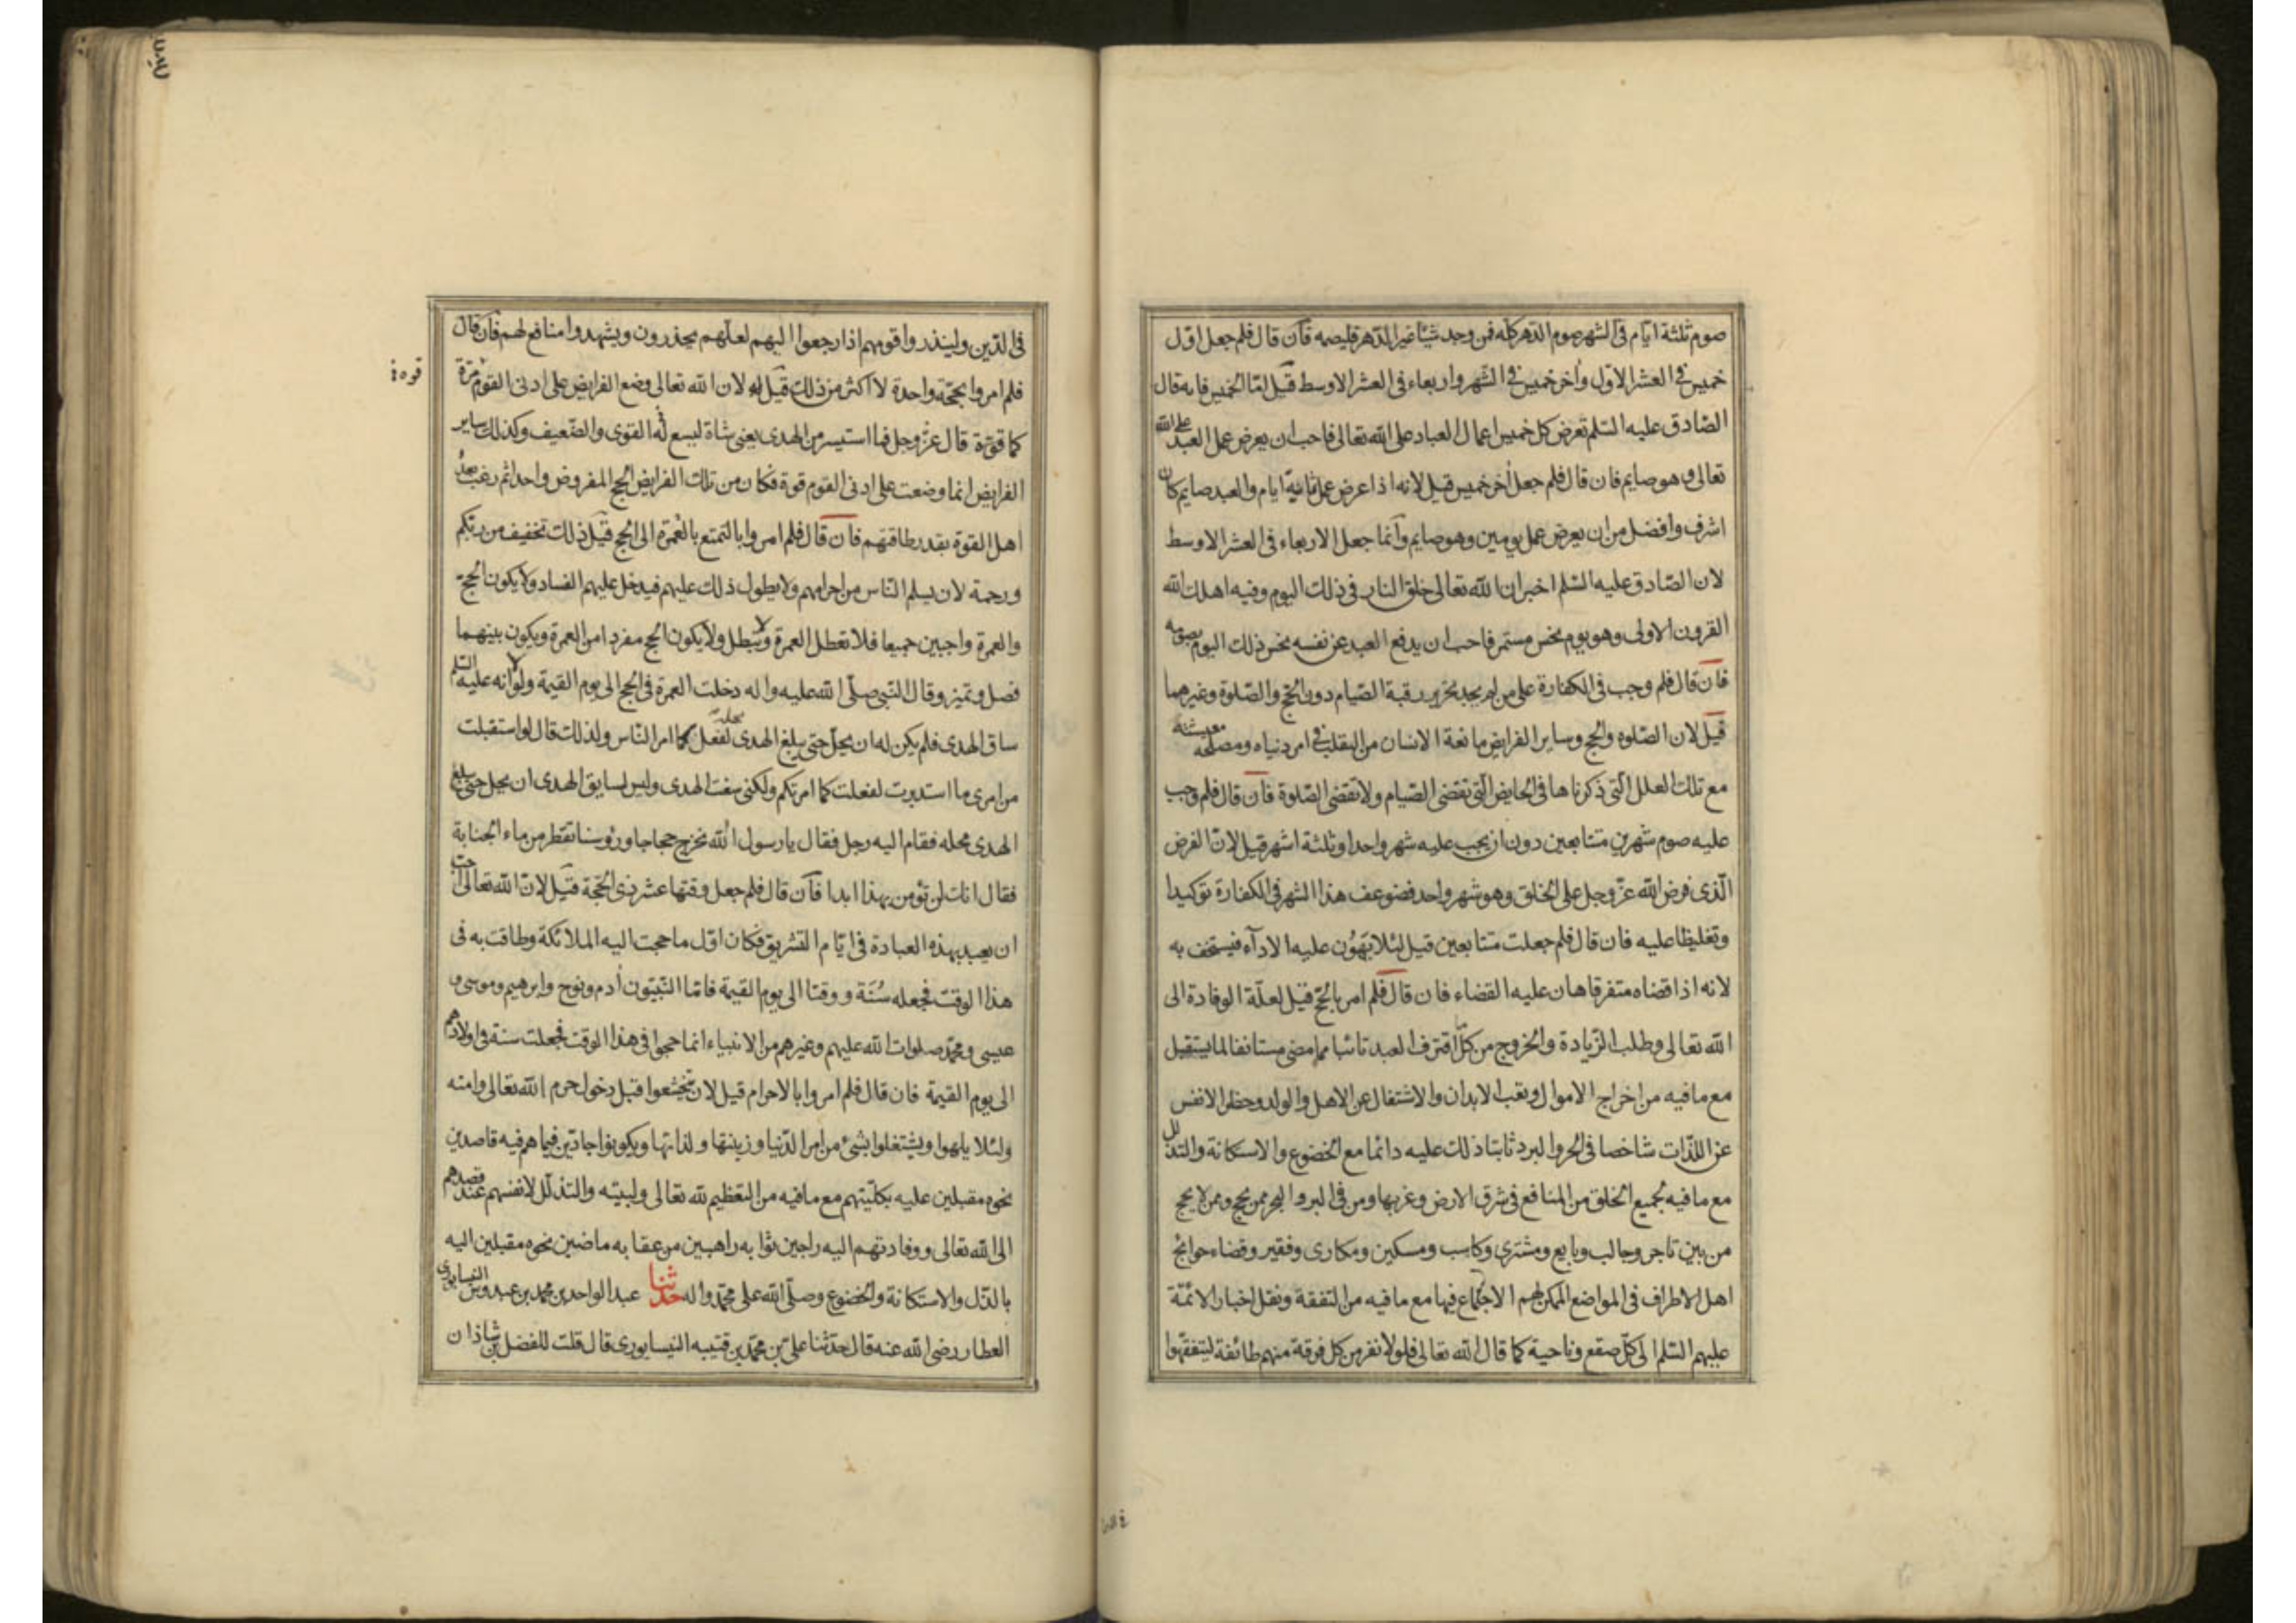 صوم ثلثة ايام فى الشهر صوم الدهر كله فمن وجد شيئا غير الدهر فليصمه فان قال فلم جعل اول
خميس فى العشر الاول وأخر خميس فى الشهر واربعاء فى العشر الاوسط قيل امّا الخميس فانه قال
الصّادق عليه السّلم تعرض كل خميس اعمال العباد على الله تعالى فاحب ان يعرض عمل العبد على الله
تعالى وهو صايم فان قال فلم جعل أخر خميس قيل لانه اذا عرض عمل ثمانية ايام والعبد صايم كان
اشرف وافضل من ان يعرض عمل يومين وهو صايم وانّما جعل الاربعاء فى العشر الاوسط
لان الصّادق عليه السّلم اخبر ان الله تعالى خلق النار فى ذلك اليوم وفيه اهلك الله
القرون الاولى وهو يوم نحس مستمر فاحب ان يدفع العبد عن نفسه نحس ذلك اليوم بصومه
فان قال فلم وجب فى الكفارة على من لم يجد تحرير رقبة الصّيام دون الحجّ والصّلوة وغيرهما
قيل لان الصّلوه والحج وساير الفرايض مانعة الانسان من التقلب فى امر دنياه ومصلحه معيشته
مع تلك العلل الّتى ذكرناها فى الحايض الّتى تقضى الصّيام ولا تقضى الصّلوة فان قال فلم وجب
عليه صوم شهرين متتابعين دون ان يجب عليه شهر واحد او ثلثة اشهر قيل لانّ الفرض
الّذى فرض الله عزّ وجل على الخلق وهو شهر واحد فضوعف هذا الشهر فى الكفارة توكيدا
وتغليظا عليه فان قال فلم جعلت متتابعين قيل لئلا يهون عليه الاداء فيستخف به
لانه اذا قضاه متفرقا هان عليه القضاء فان قال فلم امر بالحجّ قيل لعلّة الوفادة الى
الله تعالى وطلب الزّيادة والخروج من كلّ ما اقترف العبد تائبا مما مضى مستانفا لما يستقبل
مع ما فيه من اخراج الاموال وتعب الابدان والاشتغال عن الاهل والولد وحظر الانفس
عن اللذّات شاخصا فى الحر والبرد ثابتا ذلك عليه دائما مع الخضوع والاستكانة والتذلل
مع ما فيه لجميع الخلق من المنافع فى شرق الارض وغربها ومن فى البر والبحر ممن يحج وممن لا يحج
من بين تاجر وجالب وبايع ومشترى وكاسب ومسكين ومكارى وفقير وقضاء حوائج
اهل الاطراف فى المواضع الممكن لهم الاجتماع فيها مع ما فيه من التفقة ونقل اخبار الائمّة
عليهم السّلم الى كلّ صقع وناحية كما قال الله تعالى فلولا نفر من كل فرقة منهم طائفة ليتفقّهوا
فى الدّين ولينذروا قومهم اذا رجعوا اليهم لعلّهم يحذرون ويشهدوا منافع لهم فان قال
فلم امروا بحجّة واحدة لا اكثر من ذلك قيل له لان الله تعالى وضع الفرايض على ادنى القوم مرّة
قوه
كما قوّة قال عزّ وجل فما استيسر من الهدى يعنى شاة ليسع له القوى والضّعيف وكذلك ساير
الفرايض انما وضعت على ادنى القوم قوة فكان من تلك الفرايض الحج المفروض واحدا ثم رغب بعد
اهل القوة بقدر طاقتهم فان قال فلم امروا بالتمتع بالعمرة الى الحج قيل ذلك تخفيف من ربّكم
ورحمة لان يسلم النّاس من احرامهم ولا يطول ذلك عليهم فيدخل عليهم الفساد ولا يكون الحج
والعمرة واجبين جميعا فلا تعطل العمرة ولا تبطل ولا يكون الحج مفردا من العمرة ويكون بينهما
فصل وتميز وقال النّبى صلّى الله عليه واله دخلت العمرة فى الحج الى يوم القيمة ولولا انه عليه السّلم
ساق الهدى فلم يكن له ان يحلّ حتى يبلغ الهدى محله لفعل كما امر النّاس ولذلك قال لو استقبلت
من امرى ما استدبرت لفعلت كما امرتكم ولكنى سقت الهدى وليس لسايق الهدى ان يحل حتى يبلغ
الهدى محله فقام اليه رجل فقال يا رسول الله نخرج حجاجا ورؤسنا تقطر من ماء الجنابة
فقال انك لن تؤمن بهذا ابدا فان قال فلم جعل وقتها عشر ذى الحجّة قيل لانّ الله تعالى احب
ان يعبد بهذه العبادة فى ايّام التشريق فكان اوّل ما حجت اليه الملائكة وطافت به فى
هذا الوقت فجعله سنّة ووقتا الى يوم القيمة فامّا النّبيّون أدم ونوح وابرهيم وموسى و
عيسى ومحمّد صلوات الله عليهم وغيرهم من الانبياء انما حجوا فى هذا الوقت فجعلت سنة فى اولادهم
الى يوم القيمة فان قال فلم امروا بالاحرام قيل لان يخشعوا قبل دخول حرم الله تعالى وامنه
ولئلا يلهوا ويشتغلوا بشئ من امر الدّنيا وزينتها ولذاتها ويكونوا جادّين فيما هم فيه قاصدين
نحوه مقبلين عليه بكلّيتهم مع ما فيه من التعظيم لله تعالى ولبيته والتذلّل لانفسهم عند قصدهم
الى الله تعالى ووفادتهم اليه راجين ثوابه راهبين من عقابه ماضين نحوه مقبلين اليه
بالذّل والاستكانة والخضوع وصلّى الله على محمّد واله حدثنا عبد الواحد بن محمد بن عبدوس النيسابورى
العطار رضى الله عنه قال حدّثنا علىّ بن محمّد بن قتيبه النيسابورى قال قلت للفضل بن شاذان
فى الدين